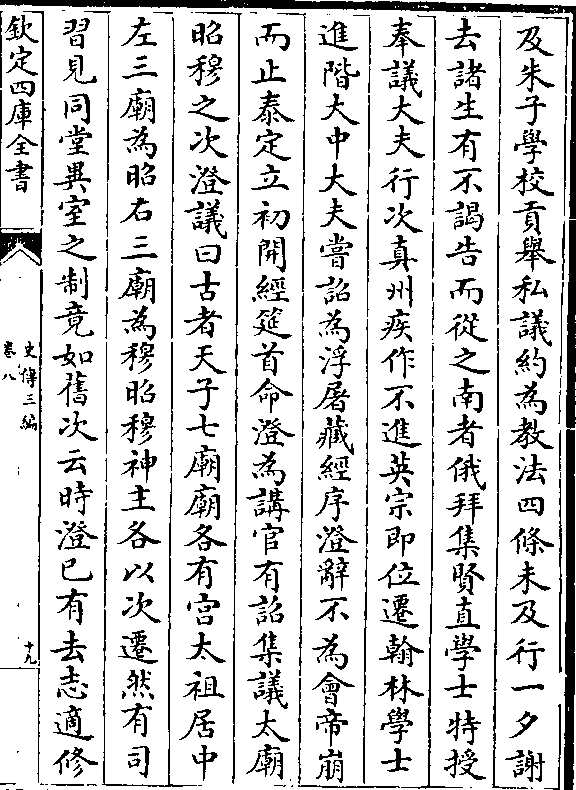 及朱子學校貢舉私議約為教法四條未及行一夕謝
去諸生有不謁告而從之南者俄拜集賢直學士特授
奉議大夫行次真州疾作不進英宗即位遷翰林學士
進階大中大夫嘗詔為浮屠藏經序澄辭不為會帝崩
而止泰定立初開經筵首命澄為講官有詔集議太廟
昭穆之次澄議曰古者天子七廟廟各有宮太祖居中
左三廟為昭右三廟為穆昭穆神主各以次遷然有司
習見同堂異室之制竟如舊次云時澄已有去志適修
欽定四庫全書
史傳三編
卷八
十九